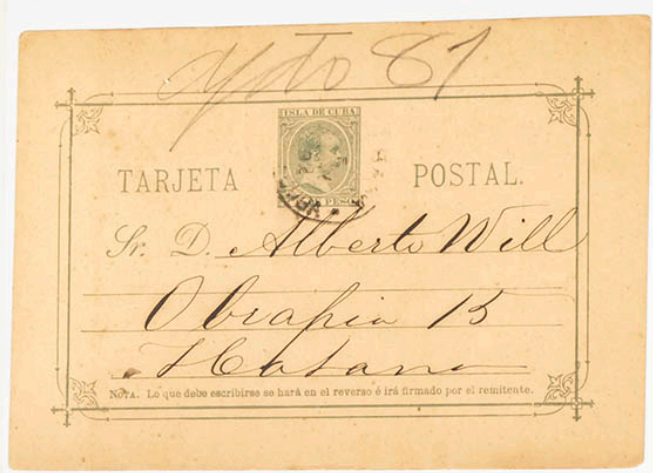 81
ISLA DE CUBA
PESO
TARJETA POSTAL.
Sr. D. Alberto Will
Obrapia 15
Habana
NOTA. Lo que debe escribirse se hará en el reverso é irá firmado por el remitente.